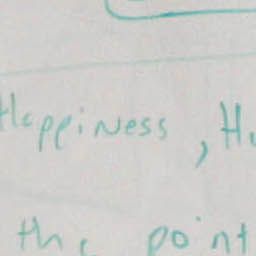 Happiness,
the point